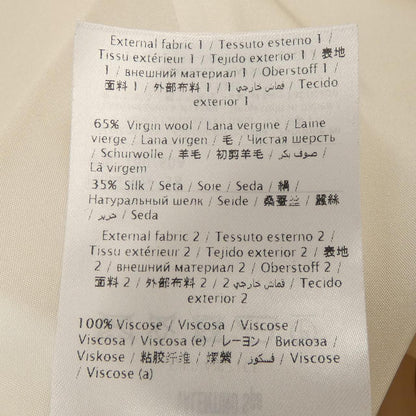 External fabric 1 / Tessuto esterno 1 /
Tissu extérieur 1 / Tejido exterior 1 / 表地
1 / внешний материал 1 / Oberstoff 1 /
面料 1 / 外部布料 1 / قماش خارجي 1 / Tecido
exterior 1
65% Virgin wool / Lana vergine / Laine
vierge / Lana virgen / 毛 / Чистая шерсть
/ Schurwolle / 羊毛 / 初剪羊毛 / صوف بكر /
Lã virgem
35% Silk / Seta / Soie / Seda / 絹 /
Натуральный шелк / Seide / 桑蚕丝 / 蠶絲
/ حرير / Seda
External fabric 2 / Tessuto esterno 2 /
Tissu extérieur 2 / Tejido exterior 2 / 表地
2 / внешний материал 2 / Oberstoff 2 /
面料 2 / 外部布料 2 / قماش خارجي 2 / Tecido
exterior 2
100% Viscose / Viscosa / Viscose /
Viscosa / Viscosa (e) / レーヨン / Вискоза /
Viskose / 粘胶纤维 / فسكوز / Viscose /
Viscose (a)